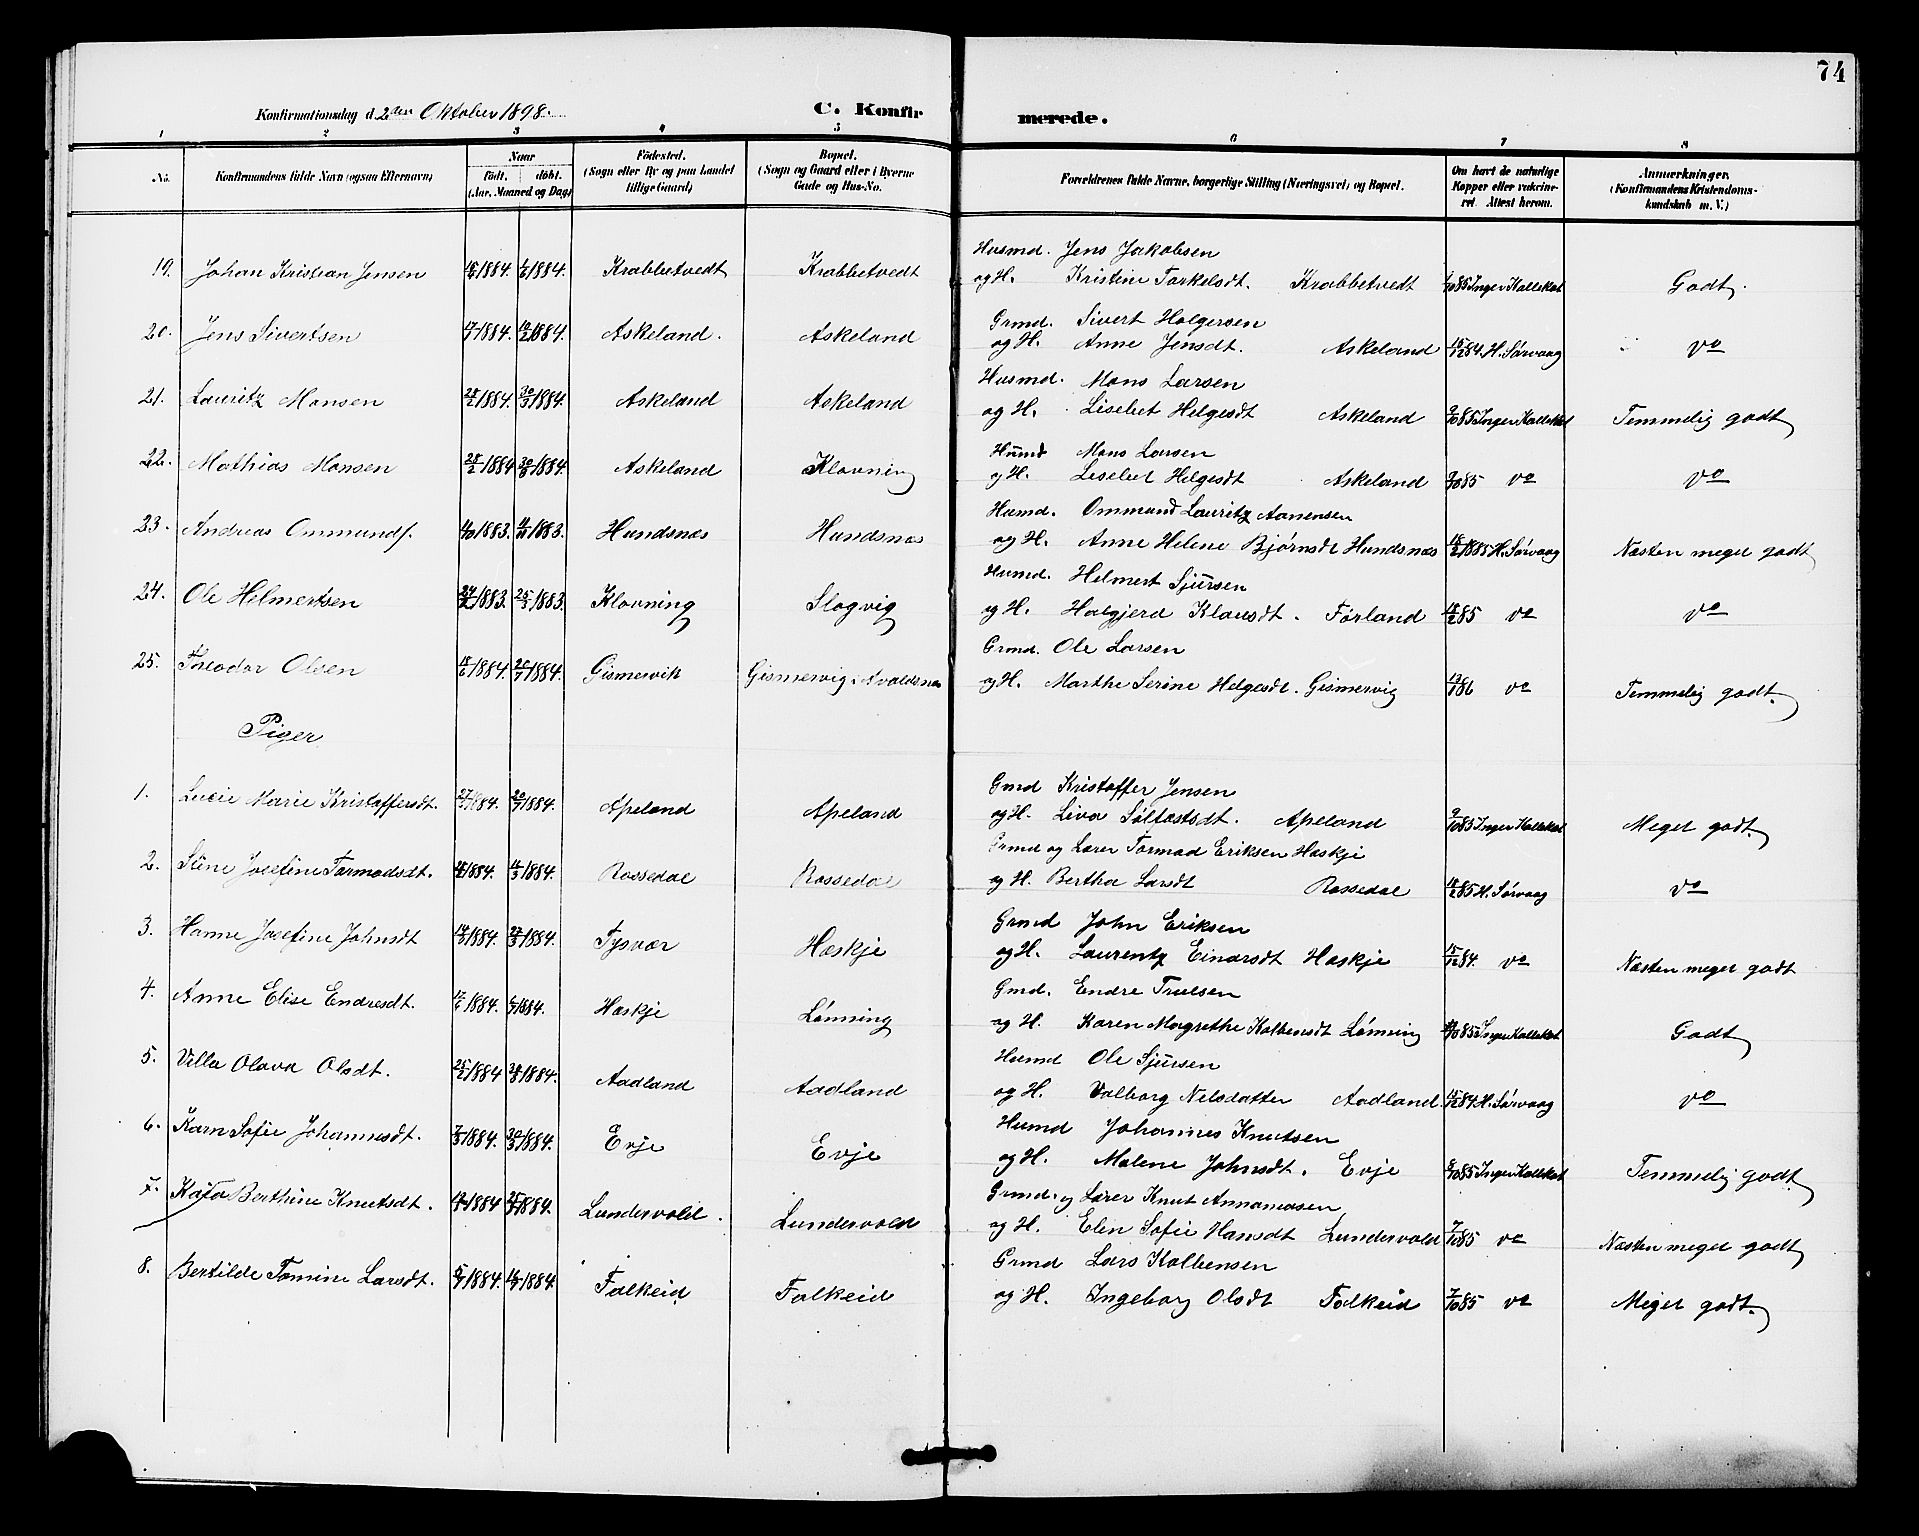 74
Konfirmationsdag d. 2den Oktober 1898.
C. Konfirmerede.
1 2 3 4 5 6 7 8
No.
Konfirmandens fulde Navn (ogsaa Efternavn)
Naar
födt. döbt.
(Aar, Maaned og Dag)
Födested.
(Sogn eller By og paa Landet
tillige Gaard)
Bopæl.
(Sogn og Gaard eller i Byerne
Gade og Hus-No.
Forældrenes fulde Navne, borgerlige Stilling (Næringsvei) og Bopæl.
Om havt de naturlige
Kopper eller vakcine-
ret. Attest herom.
Anmærkninger.
(Konfirmandens Kristendoms-
kundskab m. V.)
Husmd. Jens Jakobsen
19. Johan Kristian Jensen 1884. 1884. Krabbetvedt Krabbetvedt og H. Kristine Torkelsdt. Krabbetvedt 85 Inger Kallekot Godt.
Grmd. Sivert Holgersen
20. Jens Sivertsen 1884. 1884. Askeland. Askeland og H. Anne Jensdt. Askeland 15/12 84. H. Sørvaag do
Husmd. Mons Larsen
21. Lauritz Monsen 28/2 1884. 30/3 1884. Askeland Askeland og H. Lisebet Helgesdt Askeland 9/10 85 Inger Kallekot Temmelig godt
Husmd Mons Larsen
22. Mathias Monsen 28/2 1884 30/3 1884. Askeland Klovning og H. Lisebet Helgesdt Askeland 9/10 85 do do
Husmd. Ommund Lauritz Aanensen
23. Andreas Ommunds. 1883. 1883. Hundsnæs Hundsnæs og H. Anne Helene Bjørnsdt Hundsnæs 18/2 1885 H. Sørvaag Næsten meget godt
Husmd. Helmert Sjursen
24. Ole Helmertsen 1883. 25/3 1883. Klovning Slogvig og H. Halgjerd Klausdt. Førland 18/2 85 do do
Grmd. Ole Larsen
25. Teodor Olsen 1884. 20/7 1884. Gismervik Gismervig i Avaldsnæs og H. Marthe Serine Helgesdt. Gismervig 13/1 86 do Temmelig godt.
Piger
Gmd Kristoffer Jensen
1. Lucie Marie Kristoffersdt. 1884. 1884. Apeland Apeland og H. Liva Sølfæstsdt. Apeland 9/10 85 Inger Kallekot Meget godt
Grmd og Lærer Tormod Eriksen Haskje
2. Stine Josefine Tormodsdt. 1884. 1884. Rossedal Rossedal og H. Bertha Larsdt Rossedal 18/2 85 H. Sørvaag do
Grmd John Eriksen
3. Hanne Josefine Johnsdt 1884. 1884. Tysvær Haskje og H. Laurentz Einarsdt Haskje 15/12 84. do Næsten meget godt
Gmd. Endre Truelsen
4. Anne Elise Endresdt. 1884. 1884. Haskje Lønning og H. Karen Magrethe Kolbensdt Lønning 85 Inger Kallekot Godt
Husmd Ole Sjursen
5. Villa Olava Olsdt. 25/2 1884 1884. Aadland Aadland og H. Valborg Nelsdatter Aadland. 15/12 84 H. Sørvaag do
Husmd Johannes Knutsen
6. Karn Sofie Johannesdt. 7/3 1884. 30/3 1884. Evje Evje og H. Malene Johnsdt. Evje 85 Inger Kallekot Temmelig godt
Grmd. og Lærer Knut Annamosen
7. Kaja Berthine Knutsdt. 1884 1884. Lundervold. Lundervold og H. Elen Sofie Hansdt Lundervold 7/10 85 do Næsten meget godt
Grmd Lars Kolbensen
8. Bertilde Tomine Larsdt. 1884. 1884. Folkeid Falkeid og H. Ingeborg Olsdt Folkeid 7/10 85 do Meget godt.